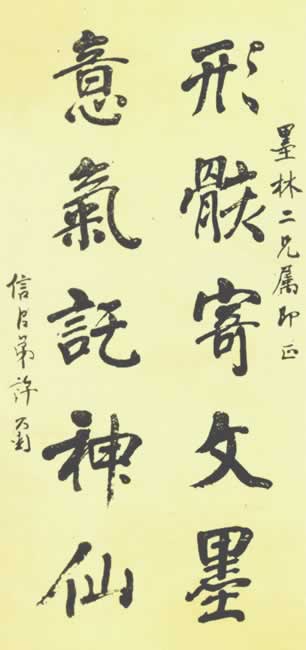 墨林二兄属即正
形骸寄文墨
意氣託神仙
信臣弟許乃釗